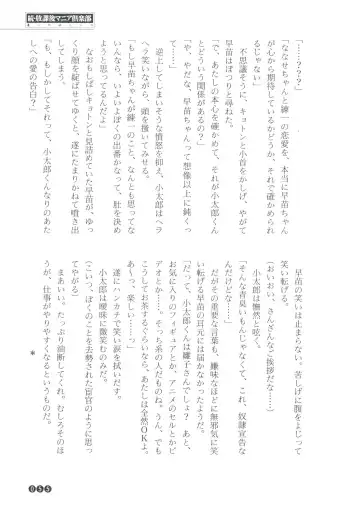 続・放課後マニア倶楽部
「……？？？」
「ななせちゃんと練一の恋愛を、本当に早苗ちゃん
が心から期待しているかどうか、それで確かめられ
るよ」
不思議そうに、キョトンと小首をかしげ、やがて
早苗はぽつりと尋ねた。
「で、あたしの本心を確かめて、それが小太郎くん
とどういう関係があるの？」
「や、やだな、早苗ちゃんって想像以上に鈍くっ
て……」
逆上してしまいそうな憤怒を抑え、小太郎はヘラ
ヘラ笑いながら、頭を掻いてみせる。
「もし早苗ちゃんが練一のこと、なんとも思ってな
いんなら、いよいよぼくの出番かなって、肚を決め
ようと思ってるんだよ」
なおもしばしキョトンと見詰めていた早苗が、ゆっ
くり顔を綻ばせてゆくと、遂にたまりかねて噴き出
した。
「も、もしかしてそれって、小太郎くんなりのあた
しへの愛の告白？」
早苗の笑いは止まらない。苦しげに腹をよじって
笑い転げる。
（おいおい、さんざんなご挨拶だな……）
小太郎は憮然と呟く。
「そんな青臭いもんじゃなくて、これ、奴隷宣告な
んだけどな……」
だがその重要な言葉も、嫌味なほどに無邪気に笑
い転げる早苗の耳元には届かなかったようだ。
「だって、小太郎くんは雛子さんでしょ？ あと、
お気に入りのフィギュアとか、アニメのセルとかビ
デオとか……。そっち系の人だものね。うん、でも
こうしてお茶するぐらいなら、あたしは全然OKよ。
あ〜っ、楽しい……っ」
遂にハンカチで笑い涙を拭いだす。
小太郎は曖昧に微笑むのみだ。
（こいつ、ぼくのことを去勢された宦官のように思っ
てやがる）
まあいい。たっぷり油断してくれ。むしろそのほ
うが、仕事がやりやすくなるというものだ。
＊
055